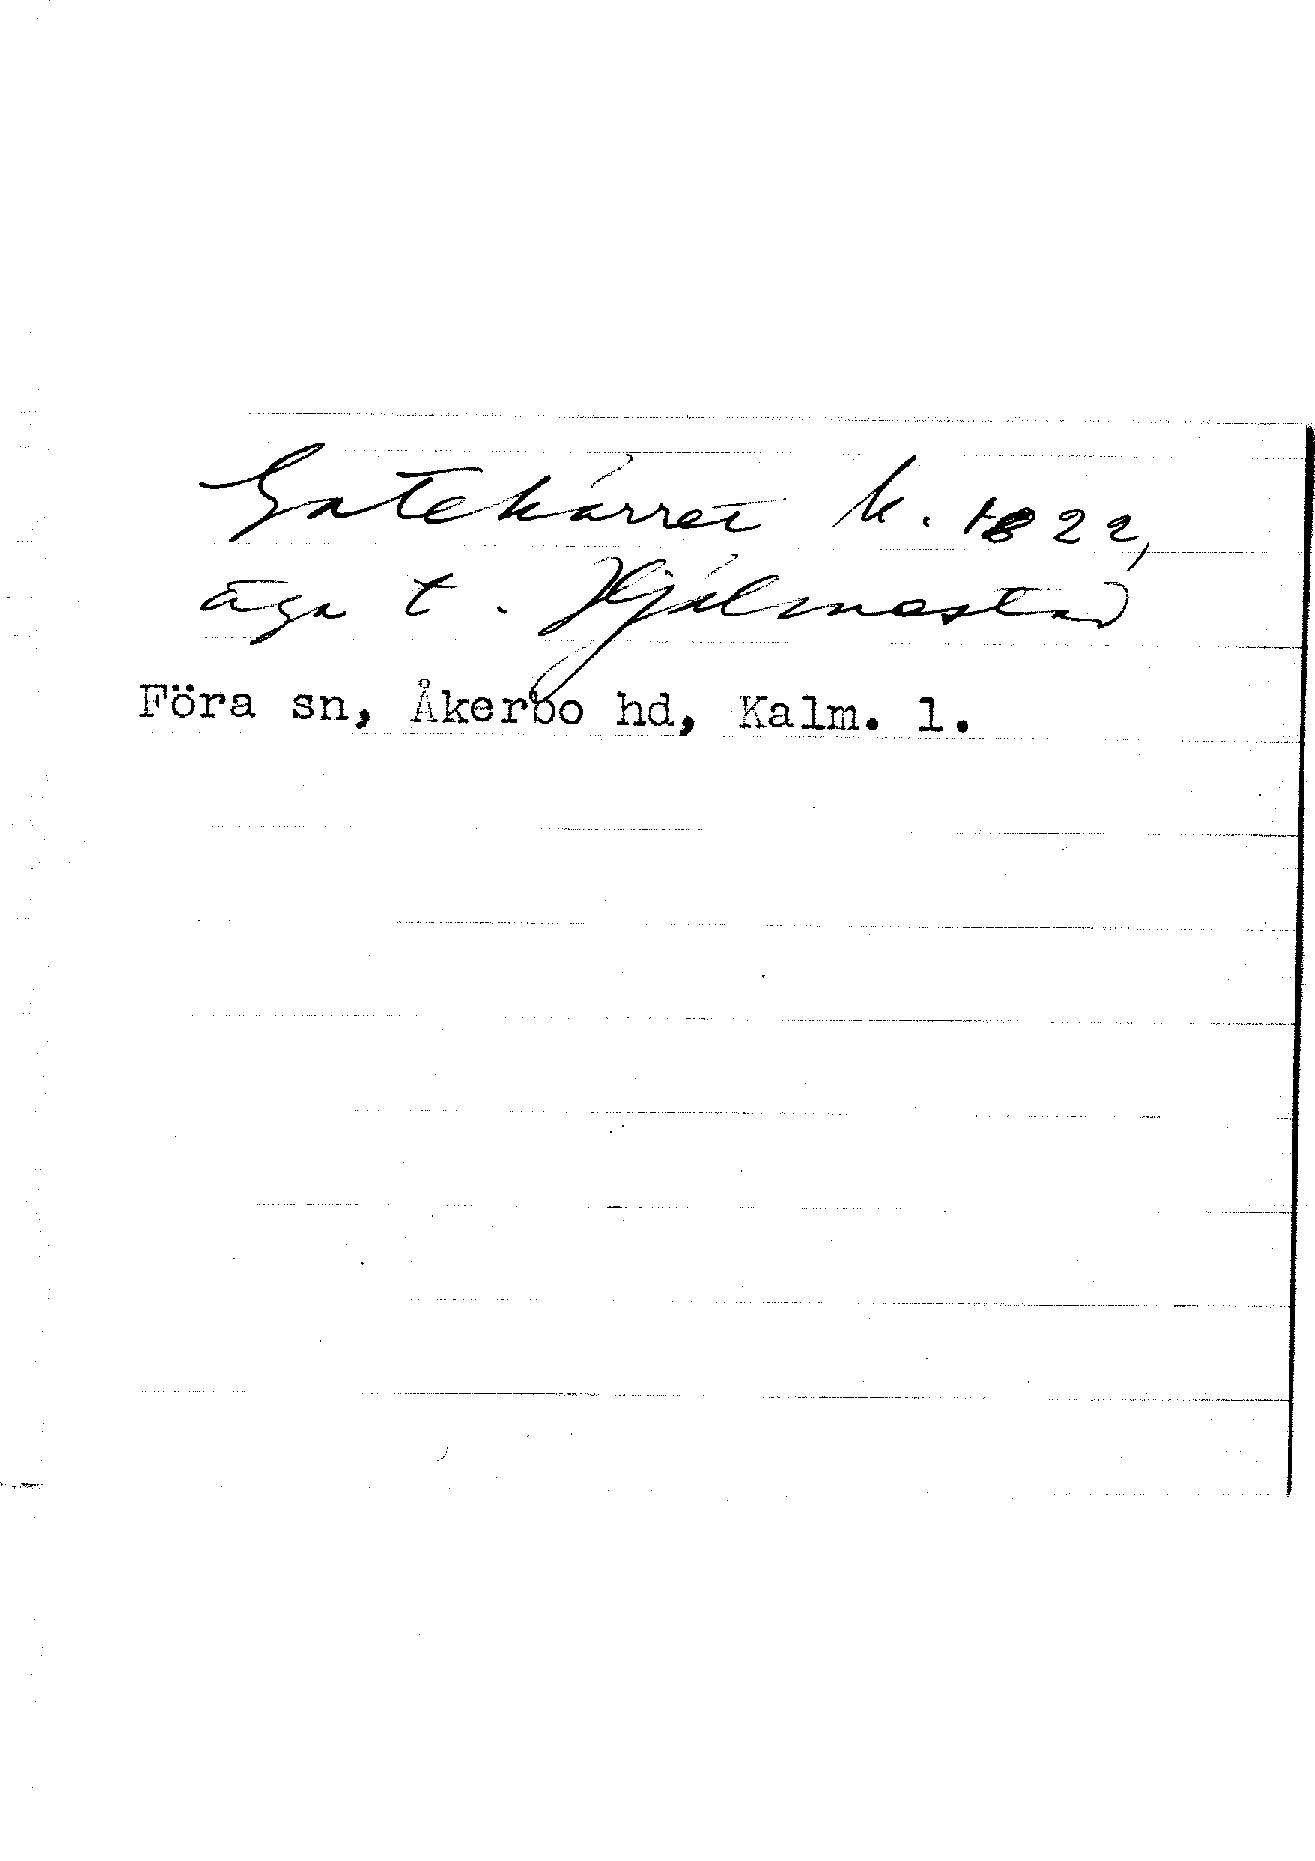 Gatekärret k. 1822,
äga t. Hjälmestad
Föra sn, Åkerbo hd, Kalm. l.